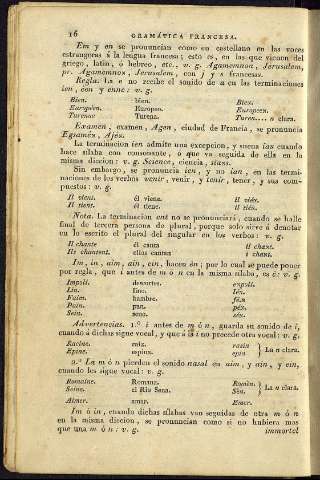 16 GRAMÁTICA FRANCESA.
Em y en se pronuncian como en castellano en las voces
estrangeras á la lengua francesa; esto es, en las que vienen del
griego, latin, ó hebreo, etc. v. g. Agamemnon, Jerusalem,
pr. Agamemnon, Jerusalem, con j y s francesas.
Regla: La e no recibe el sonido de a en las terminaciones
ien, éen y enne: v. g.
Bien. bien. Bien.
Européen. Europeo. Européen.
Turenne Turena. Turen.... n clara.
Examen, examen, Agen, ciudad de Francia, se pronuncia
La terminacion ien admite una excepcion, y suena ian cuando
hace sílaba con consonante, ó que va seguida de ella en la
misma diccion: v. g. Science, ciencia, sians.
Sin embargo, se pronuncia ien, y no ian, en las termi-
naciones de los verbos venir, venir, y tenir, tener, y sus com-
puestos: v. g.
Il vient. él viene. Il vién.
Il tient. él tiene. Il tién.
Nota. La terminacion ent no se pronunciará, cuando se halle
final de tercera persona de plural, porque solo sirve á denotar
en lo escrito el plural del singular en los verbos: v. g.
Il chante él canta il chant.
Ils chantent. ellos cantan i chant.
Im, in, aim, ain, ein, hacen én; por lo cual se puede poner
por regla, que i antes de m ó n en la misma sílaba, es é: v. g.
Impoli. descortes. enpoli.
Lin. lino. lén.
Faim. hambre. fén
Pain. pan. pén.
Sein. seno. sén.
Advertencias. 1.ª i antes de m ó n, guarda su sonido de i,
cuando á dichas sigue vocal, y que á la i no precede otra vocal: v. g.
Racine. raiz. rasin
Epine. espina. epin } La n clara.
2.ª La m ó n pierden el sonido nasal en aim, y ain, y ein,
cuando les sigue vocal: v. g.
Romaine. Romana. Romèn.
Seine. el Rio Sena. Sèn. } La n clara.
Aimer. amar. Emer.
Im ó in, cuando dichas sílabas van seguidas de otra m ó n
en la misma diccion, se pronuncian como si no hubiera mas
que una m ó n: v. g. immortel